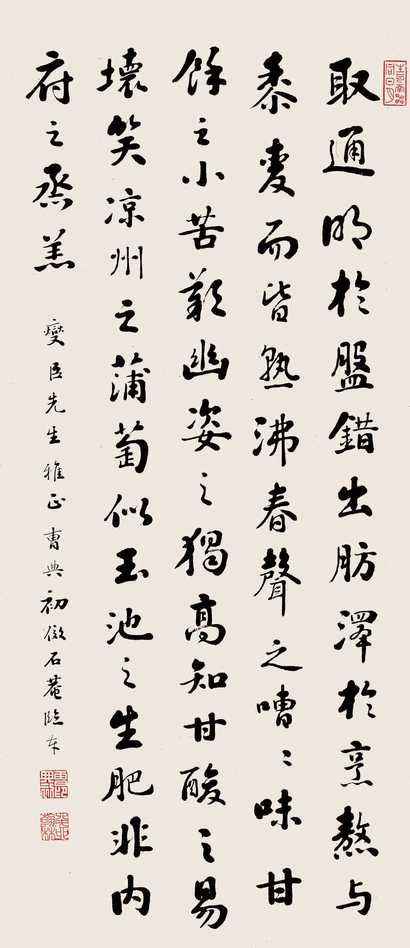 取通明於盤錯出肪澤於烹熬与
黍麦而皆熟沸舂聲之嘈〻味甘
馀之小苦歎幽姿之獨高知甘酸之易
壞笑凉州之蒲萄似玉池之生肥非内
府之烝羔
燮臣先生雅正曹典初倣石菴臨本